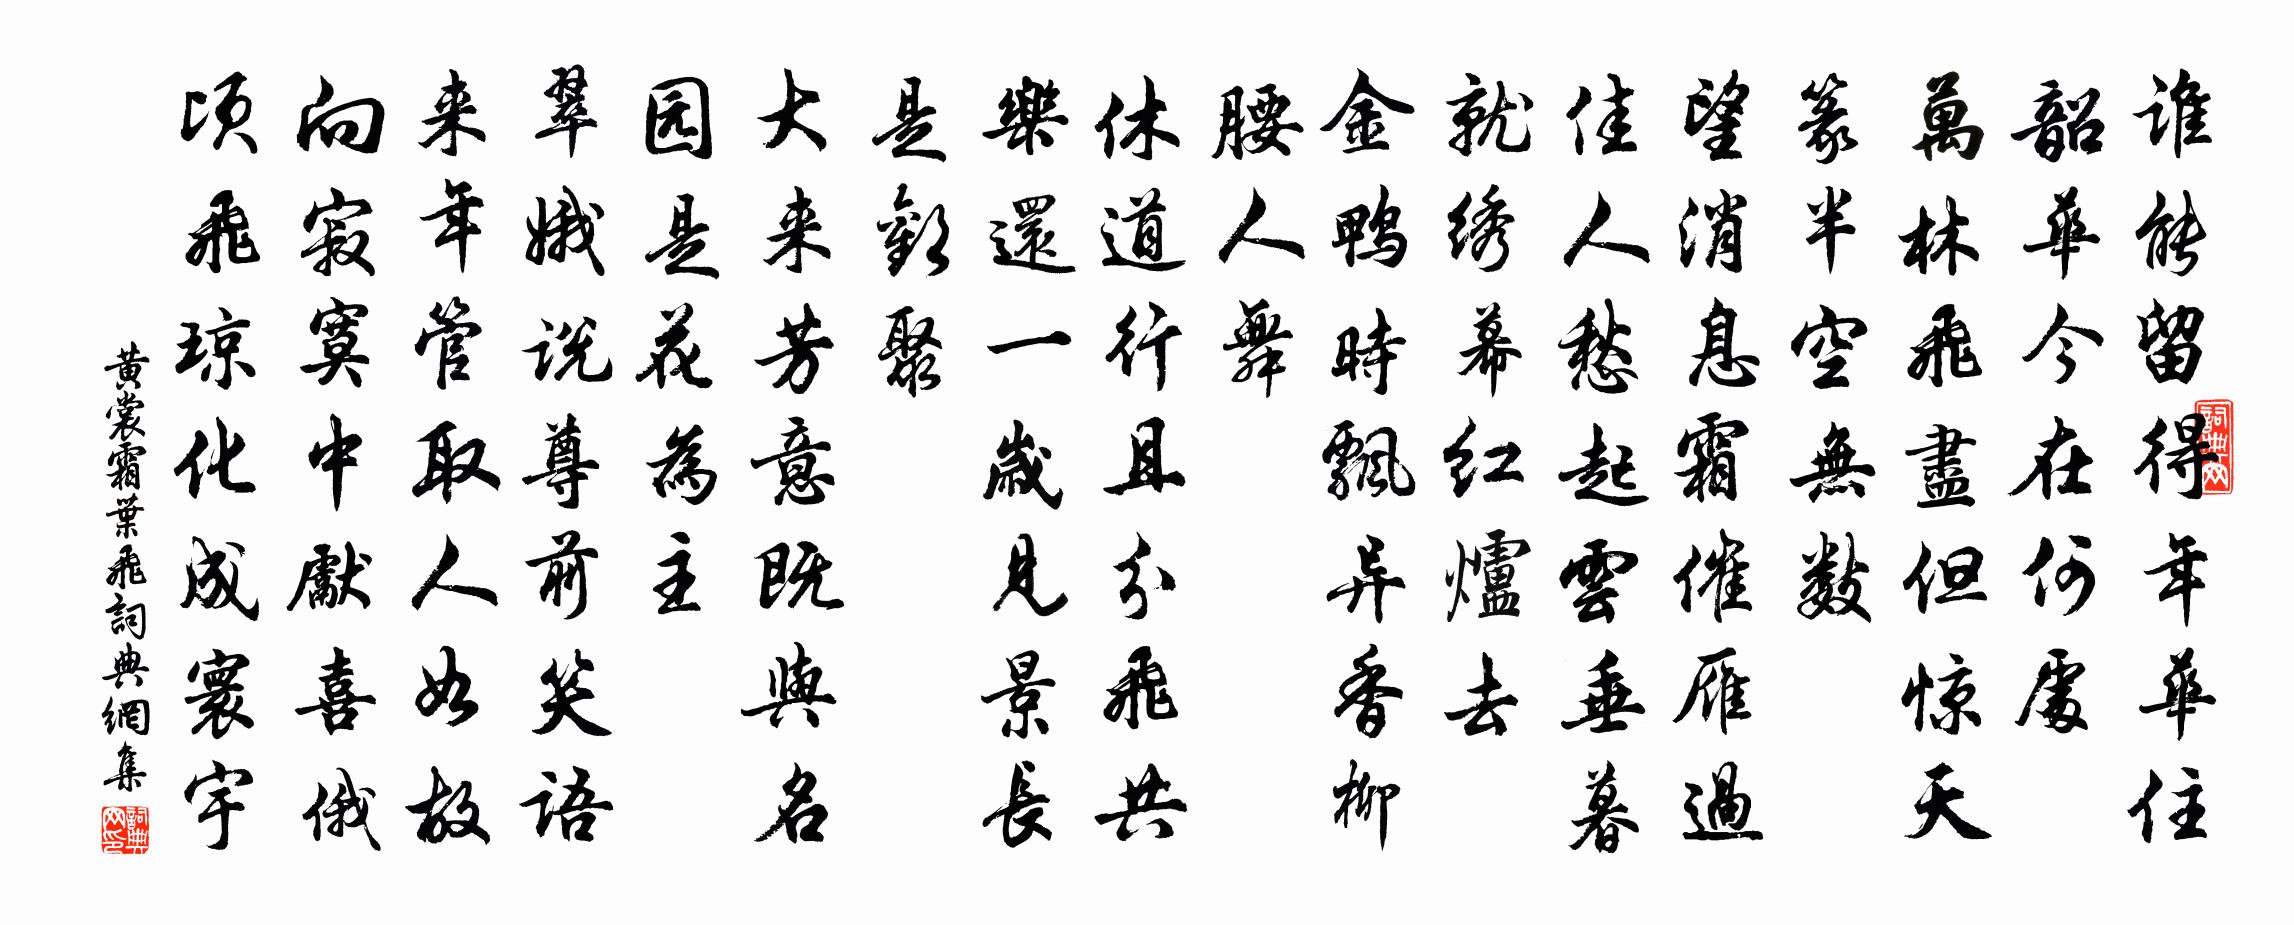 谁能留得年華住
韶華今在何處
萬林飛盡但惊天
篆半空無数
望消息霜催雁過
佳人愁起雲垂暮
就绣幕红爐去
金鸭時飄异香柳
腰人舞
休道行且分飛共
樂還一歲見景長
是歡聚
大来芳意既與名
园是花為主
翠娥说尊前笑语
来年管取人如故
向寂寞中獻喜俄
顷飛琼化成寰宇
黄裳霜葉飛詞典網集
詞典网
詞典网印